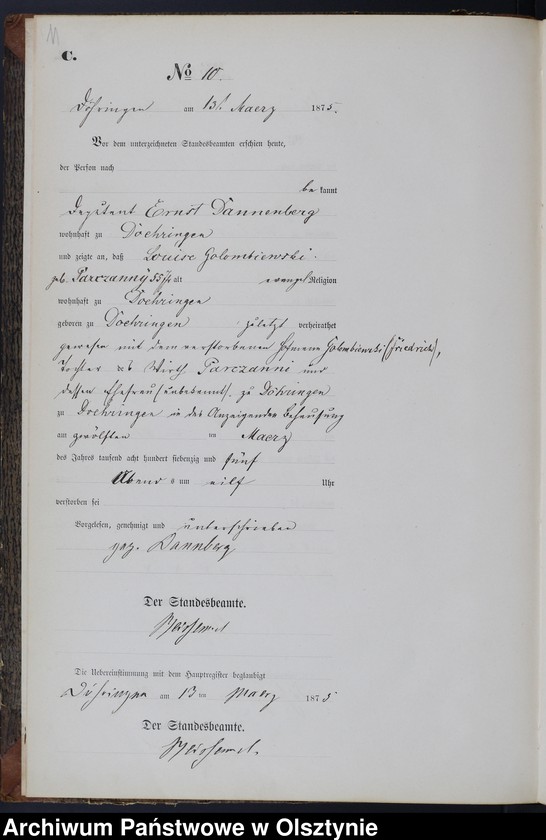 11
C.
No 10.
Döhringen am 13t Maerz 1875.
Vor dem unterzeichneten Standesbeamten erschien heute,
der Person nach
bekannt
Deputant Ernst Dannenberg
wohnhaft zu Doehringen
und zeigte an, daß Louise Golombiewski
geb. Parczanny 55 J. alt evangel Religion
wohnhaft zu Doehringen
geboren zu Doehringen zuletzt verheirathet
gewesen mit dem verstorbenen Golombiewski (Friedrich),
Tochter des Wirth Parczanni und
dessen Ehefrau (unbekannt). zu Döhringen
zu Doehringen in des Anzeigenden Behausung
am zwölften ten Maerz
des Jahres tausend acht hundert siebenzig und fünf
Abend s um eilf Uhr
verstorben sei
Vorgelesen, genehmigt und unterschrieben
gez. Dannberg
Der Standesbeamte.
Die Uebereinstimmung mit dem Hauptregister beglaubigt
Döhringen am 13 ten Maerz 1875
Der Standesbeamte.
Archiwum Państwowe w Olsztynie